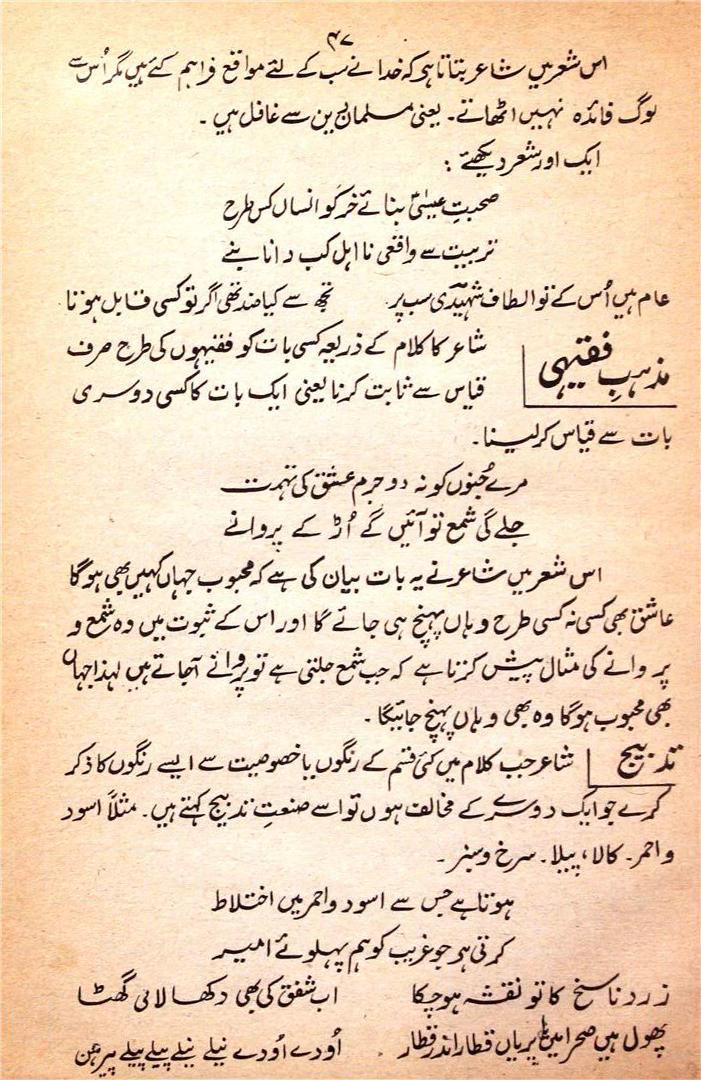 ۴۷
اس شعر میں شاعر بتاتا ہی کہ خدا نے سب کے لئے مواقع فراہم کئے ہیں مگر اُس سے
لوگ فائدہ نہیں اٹھاتے۔ یعنی مسلمان دین سے غافل ہیں۔
ایک اور شعر دیکھئے :
صحبتِ عیسیٰؑ بنائے خر کو انساں کس طرح
تربیت سے واقعی نااہل کب دانا بنے
عام ہیں اُس کے تو الطاف شہیدی سب پر تجھ سے کیا ضد تھی اگر تو کسی قابل ہوتا
مذہبِ فقیہی شاعر کا کلام کے ذریعہ کسی بات کو فقیہوں کی طرح صرف
قیاس سے ثابت کرنا یعنی ایک بات کا کسی دوسری
بات سے قیاس کرلینا۔
مرے جُنوں کو نہ دو جرم عشق کی تہمت
جلے گی شمع تو آئیں گے اُڑ کے پروانے
اس شعر میں شاعر نے یہ بات بیان کی ہے کہ محبوب جہاں کہیں بھی ہوگا
عاشق بھی کسی نہ کسی طرح وہاں پہنچ ہی جائے گا اور اس کے ثبوت میں وہ شمع و
پروانے کی مثال پیش کرتا ہے کہ جب شمع جلتی ہے تو پروانے آجاتے ہیں لہذا جہاں
بھی محبوب ہوگا وہ بھی وہاں پہنچ جائیگا۔
تدبیج شاعر جب کلام میں کئی قسم کے رنگوں یا خصوصیت سے ایسے رنگوں کا ذکر
کرے جو ایک دوسرے کے مخالف ہوں تو اسے صنعتِ تدبیج کہتے ہیں۔ مثلاً اسود
و احمر۔ کالا، پیلا۔ سرخ و سبز۔
ہوتا ہے جس سے اسود و احمر میں اختلاط
کرتی ہر جو غریب کو ہم پہلوئے امیر
زرد ناسخ کا تو نقشہ ہوچکا اب شفق کی بھی دکھا لالی گھٹا
پھول ہیں صحرا میں یا پریاں قطار اندر قطار اُودے اُودے نیلے نیلے پیلے پیلے پیرہن